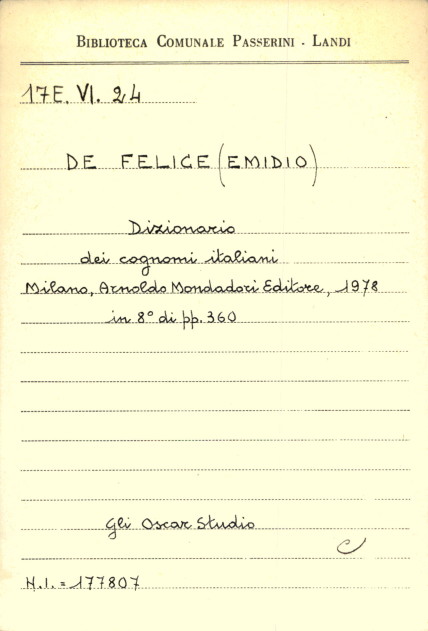 BIBLIOTECA COMUNALE PASSERINI - LANDI
17E. VI. 24
DE FELICE (EMIDIO)
Dizionario
dei cognomi italiani
Milano, Arnoldo Mondadori Editore, 1978
in 8° di pp. 360
Gli Oscar Studio
C
N.I. = 177807